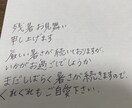 残暑お見舞い
申し上げます
厳しい暑さが続いておりますが、
いかがお過ごしでしょうか
まだしばらく暑さが続きますので、
くれぐれもご自愛下さい。